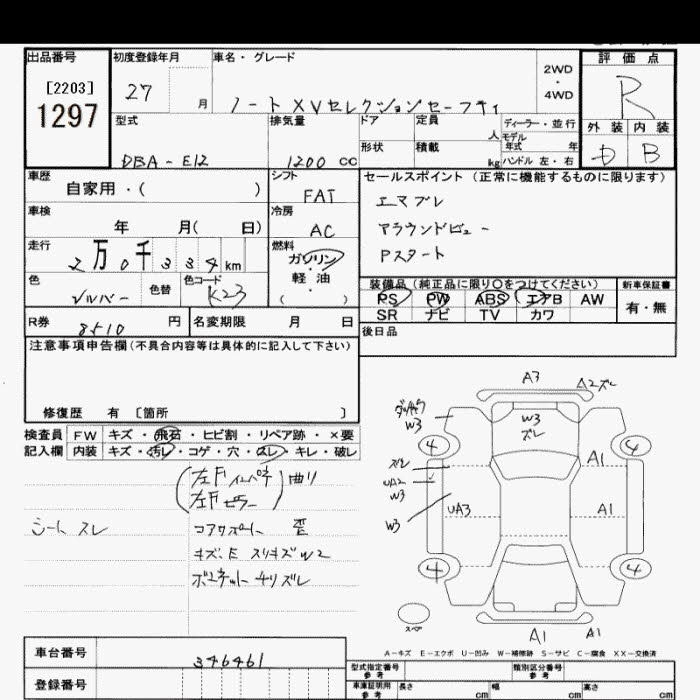 出品番号 初度登録年月 車名・グレード 評価点
[2203]
1297
27 月
ノート XVセレクションセーフティ
2WD
・
4WD
R
型式 排気量 ドア 定員 人 ディーラー・並行
モデル
年式 年
外装 内装
DBA-E12 1200 CC
形状 積載 kg ハンドル 左・右
D B
車歴 自家用・( )
シフト FAT
セールスポイント (正常に機能するものに限ります)
エマブレ
アラウンドビュー
Pスタート
車検 年 月( 日)
冷房 AC
走行 2万0千334km
燃料 ガソリン
・
軽油
( )
色 シルバー 色替 色コード K23
装備品 (純正品に限り〇をつけてください) 新車保証書
PS PW ABS エアB AW 有・無
SR ナビ TV カワ
R券 8510 円 名変期限 月 日
後日品
注意事項申告欄(不具合内容等は具体的に記入して下さい)
修復歴 有 〔箇所 〕
検査員 FW キズ・飛石・ヒビ割・リペア跡・×要
記入欄 内装 キズ・汚レ・コゲ・穴・スレ・キレ・破レ
左Fインパネ
左Fピラー
曲り
シート スレ
コアサポート 歪
キズ、E スリキズ W2
ボンネット チリズレ
A3 A2ズレ
W3
W3
ズレ
4 4
A1
ズレ
UA2
W3
W3
UA3 A1
4 4
スペア
A1 A1
A-キズ E-エクボ U-凹み W-補修跡 S-サビ C-腐食 XX-交換済
車台番号 346461
登録番号
型式指定番号
参考
類別区分番号
参考
車庫証明用
参考
長さ cm 幅 cm 高さ cm